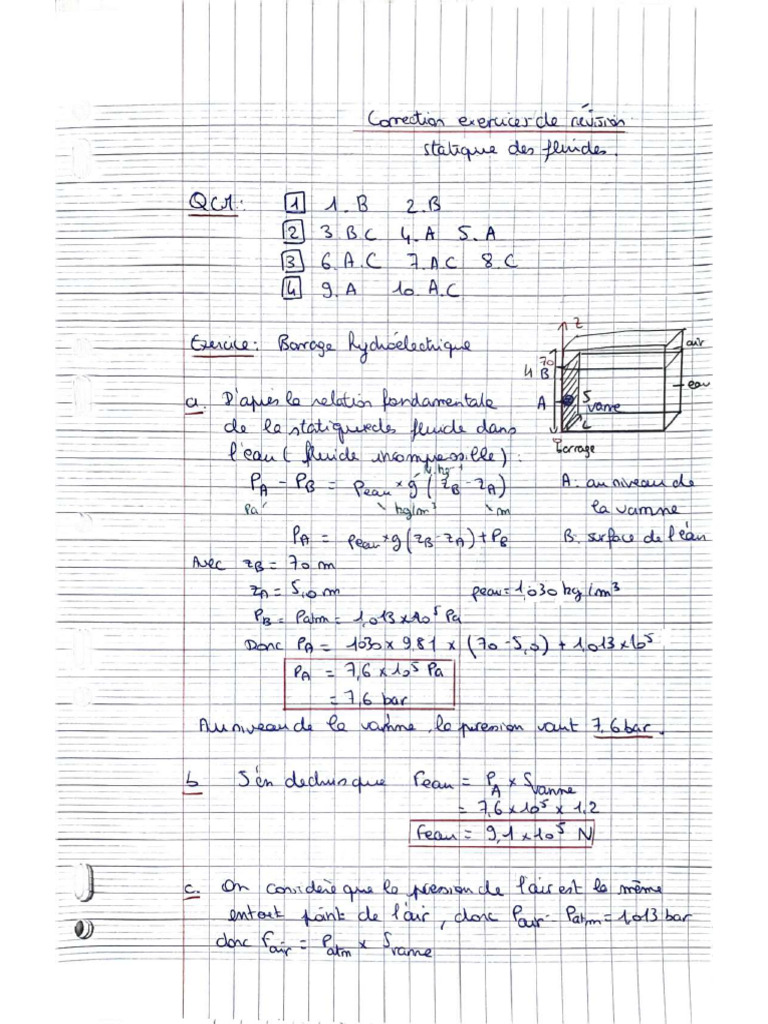 Correction exercices de révision
statique des fluides.
QCM: 1 1. B 2. B
2 3. B C 4. A 5. A
3 6. A. C 7. AC 8. C
4 9. A 10. A. C
Exercice: Barrage hydroélectrique
z
air
70
4 B
eau
A
S
vanne
L
barrage
a. D'après la relation fondamentale
de la statique des fluide dans
l'eau (fluide incompressible):
N.kg⁻¹
P_A - P_B = ρeau × g (z_B - z_A)
Pa kg/m³ m
A: au niveau de
la vanne
P_A = ρeau × g (z_B - z_A) + P_B
B: surface de l'eau
Avec z_B = 70 m
z_A = 5,0 m ρeau = 1,030 kg/m³
P_B = Patm = 1,013 × 10⁵ Pa
Donc P_A = 1030 × 9,81 × (70 - 5,0) + 1,013 × 10⁵
P_A = 7,6 × 10⁵ Pa
= 7,6 bar
Au niveau de la vanne, la pression vaut 7,6 bar.
b S'en déduis que Feau = P_A × Svanne
= 7,6 × 10⁵ × 1,2
Feau = 9,1 × 10⁵ N
c. On considère que la pression de l'air est la même
en tout point de l'air, donc Pair = Patm = 1,013 bar
donc Fair = Patm × Svanne